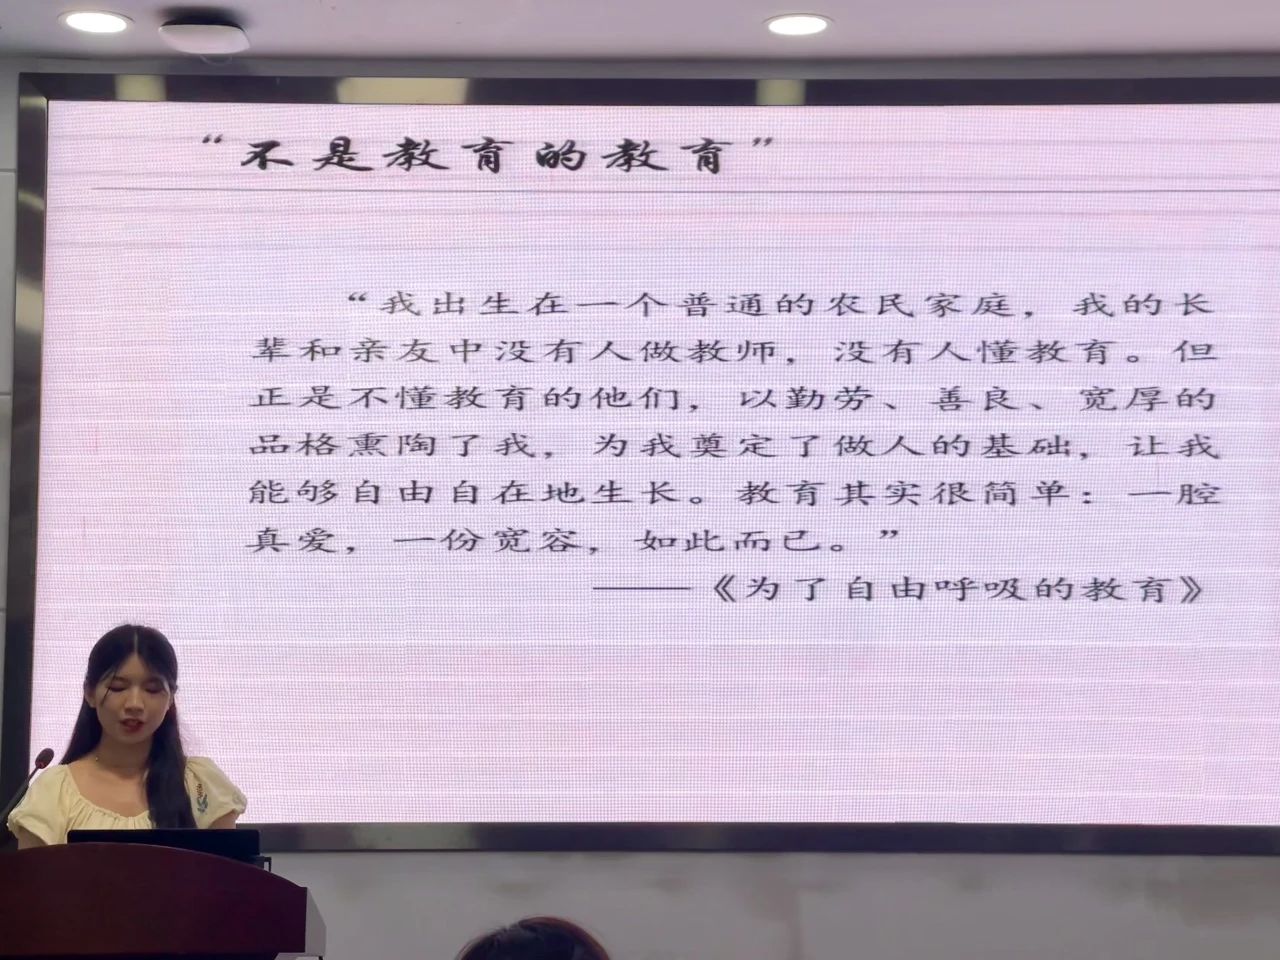 “不是教育的教育”
“我出生在一个普通的农民家庭，我的长
辈和亲友中没有人做教师，没有人懂教育。但
正是不懂教育的他们，以勤劳、善良、宽厚的
品格熏陶了我，为我奠定了做人的基础，让我
能够自由自在地生长。教育其实很简单：一腔
真爱，一份宽容，如此而已。”
——《为了自由呼吸的教育》